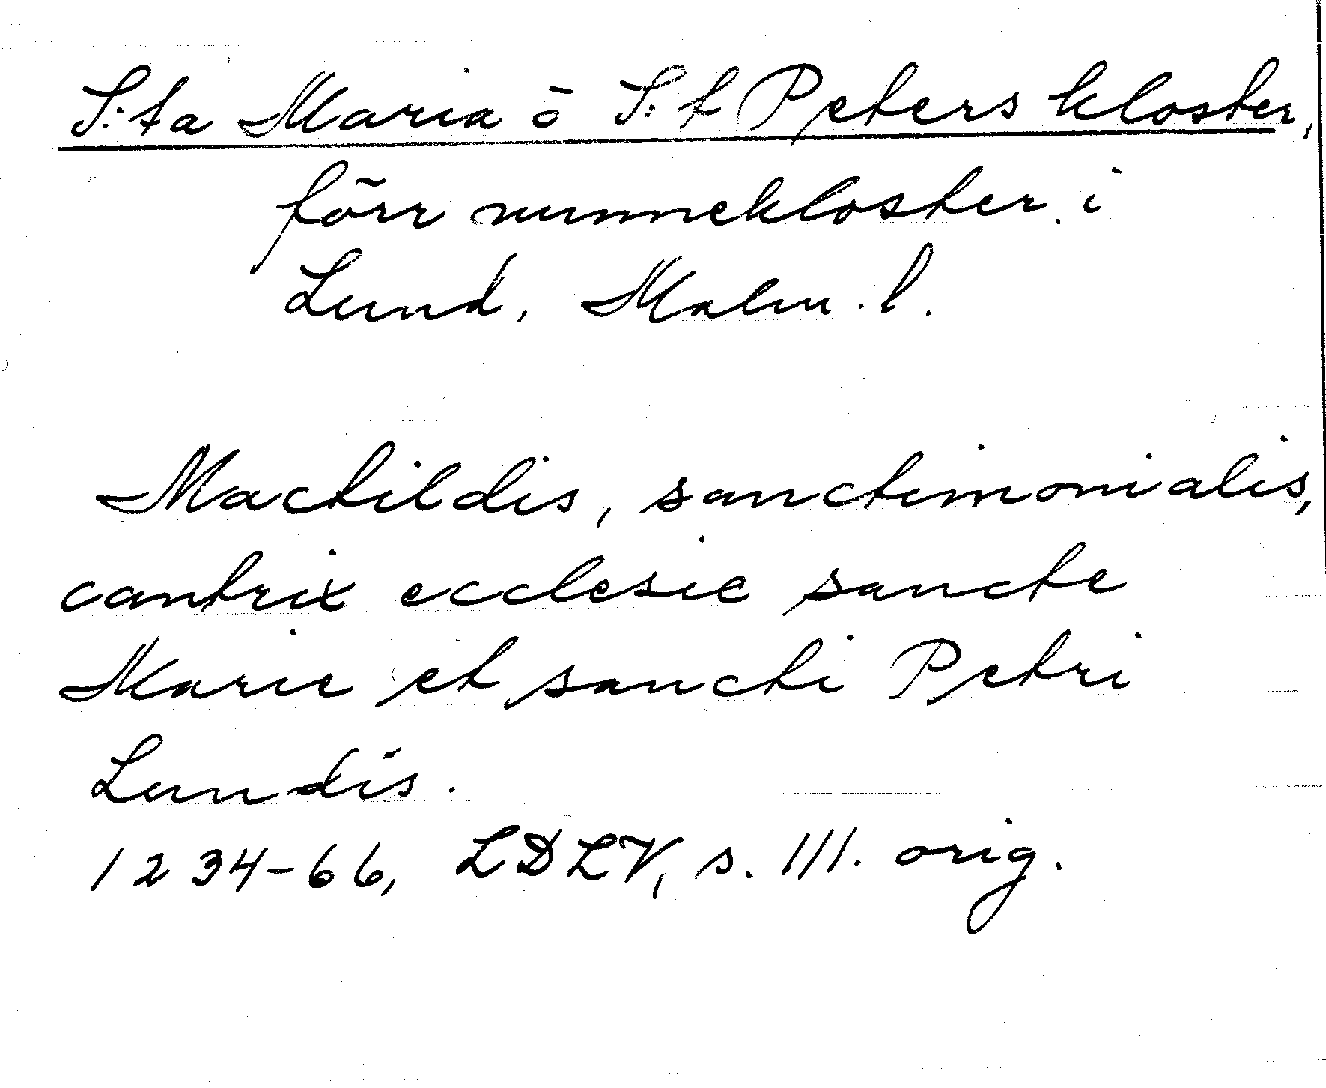 S:ta Maria o S:t Peters kloster,
förr nunnekloster i
Lund, Malm. l.
Machildis, sanctimonialis,
cantrix ecclesie sancte
Marie et sancti Petri
Lundis.
1234-66, LDLV, s. 111. orig.